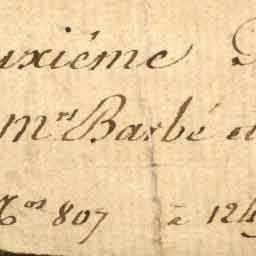 uxiéme D
mrs Barbé et
Nos 807 à 124